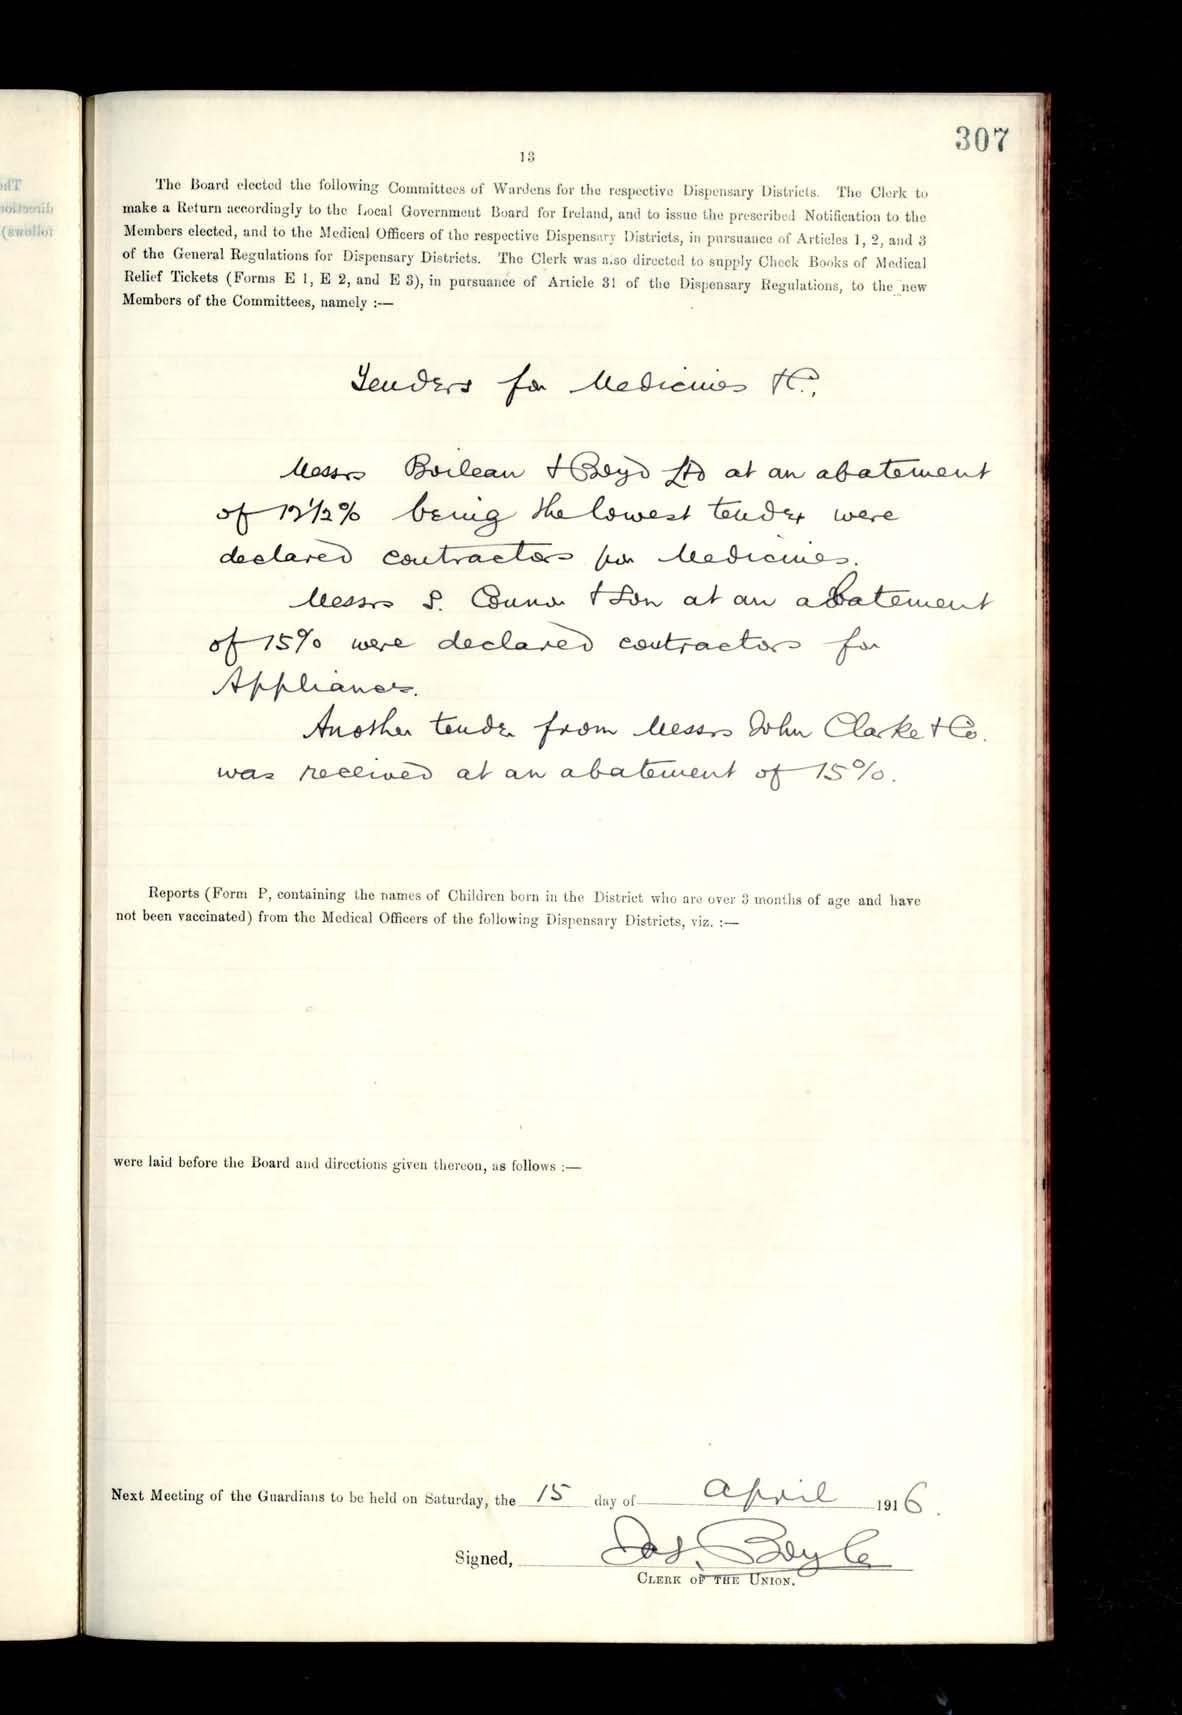 307
13
The Board elected the following Committees of Wardens for the respective Dispensary Districts. The Clerk to
make a Return accordingly to the Local Government Board for Ireland, and to issue the prescribed Notification to the
Members elected, and to the Medical Officers of the respective Dispensary Districts, in pursuance of Articles 1, 2, and 3
of the General Regulations for Dispensary Districts. The Clerk was also directed to supply Check Books of Medical
Relief Tickets (Forms E 1, E 2, and E 3), in pursuance of Article 31 of the Dispensary Regulations, to the new
Members of the Committees, namely :—
Tenders for Medicines &c.,
Messrs Boilean & Boyd Ltd at an abatement
of 12½% being the lowest tender were
declared contractors for Medicines.
Messrs S. Connor & Son at an abatement
of 15% were declared contractors for
Appliances.
Another tender from Messrs John Clarke & Co.
was received at an abatement of 15%.
Reports (Form P, containing the names of Children born in the District who are over 3 months of age and have
not been vaccinated) from the Medical Officers of the following Dispensary Districts, viz. :—
were laid before the Board and directions given thereon, as follows :—
Next Meeting of the Guardians to be held on Saturday, the 15 day of April 1916.
Signed, Jas. Boyle
CLERK OF THE UNION.